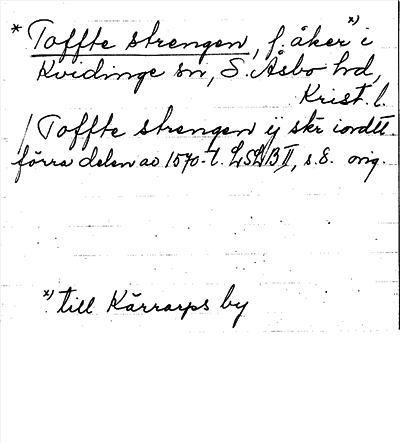 * Toffte strengen, f. åker x) i
Kvidinge sn, S. Åsbo hd,
Krist. l.
/ Toffte strengen ij skr iordtt
förra delen av 1570-t. LSLB II, s. 8. orig.
x) till Kärrarps by